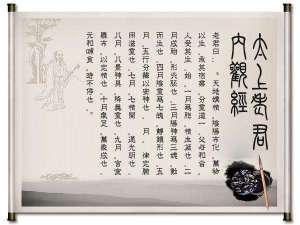 太上老君
內觀經
老君曰：。天地媾精，陰陽布化，萬物
以生，承其宿業，分靈道一，父母和合，
人受其生。始，一月為胞，精血凝也，二
月成胎，形兆胚也，三月陽神為三魂，動
而生也，四月陰靈為七魄，靜鎮形也，五
月，五行分藏以安神也，月，律定腑
用滋靈也，七月，七精開，通光明也，
八月，八景神具，降真靈也，九月，宮室
羅布，以定精也，十月炁足，萬象成也，
元和哺食，時不停也。